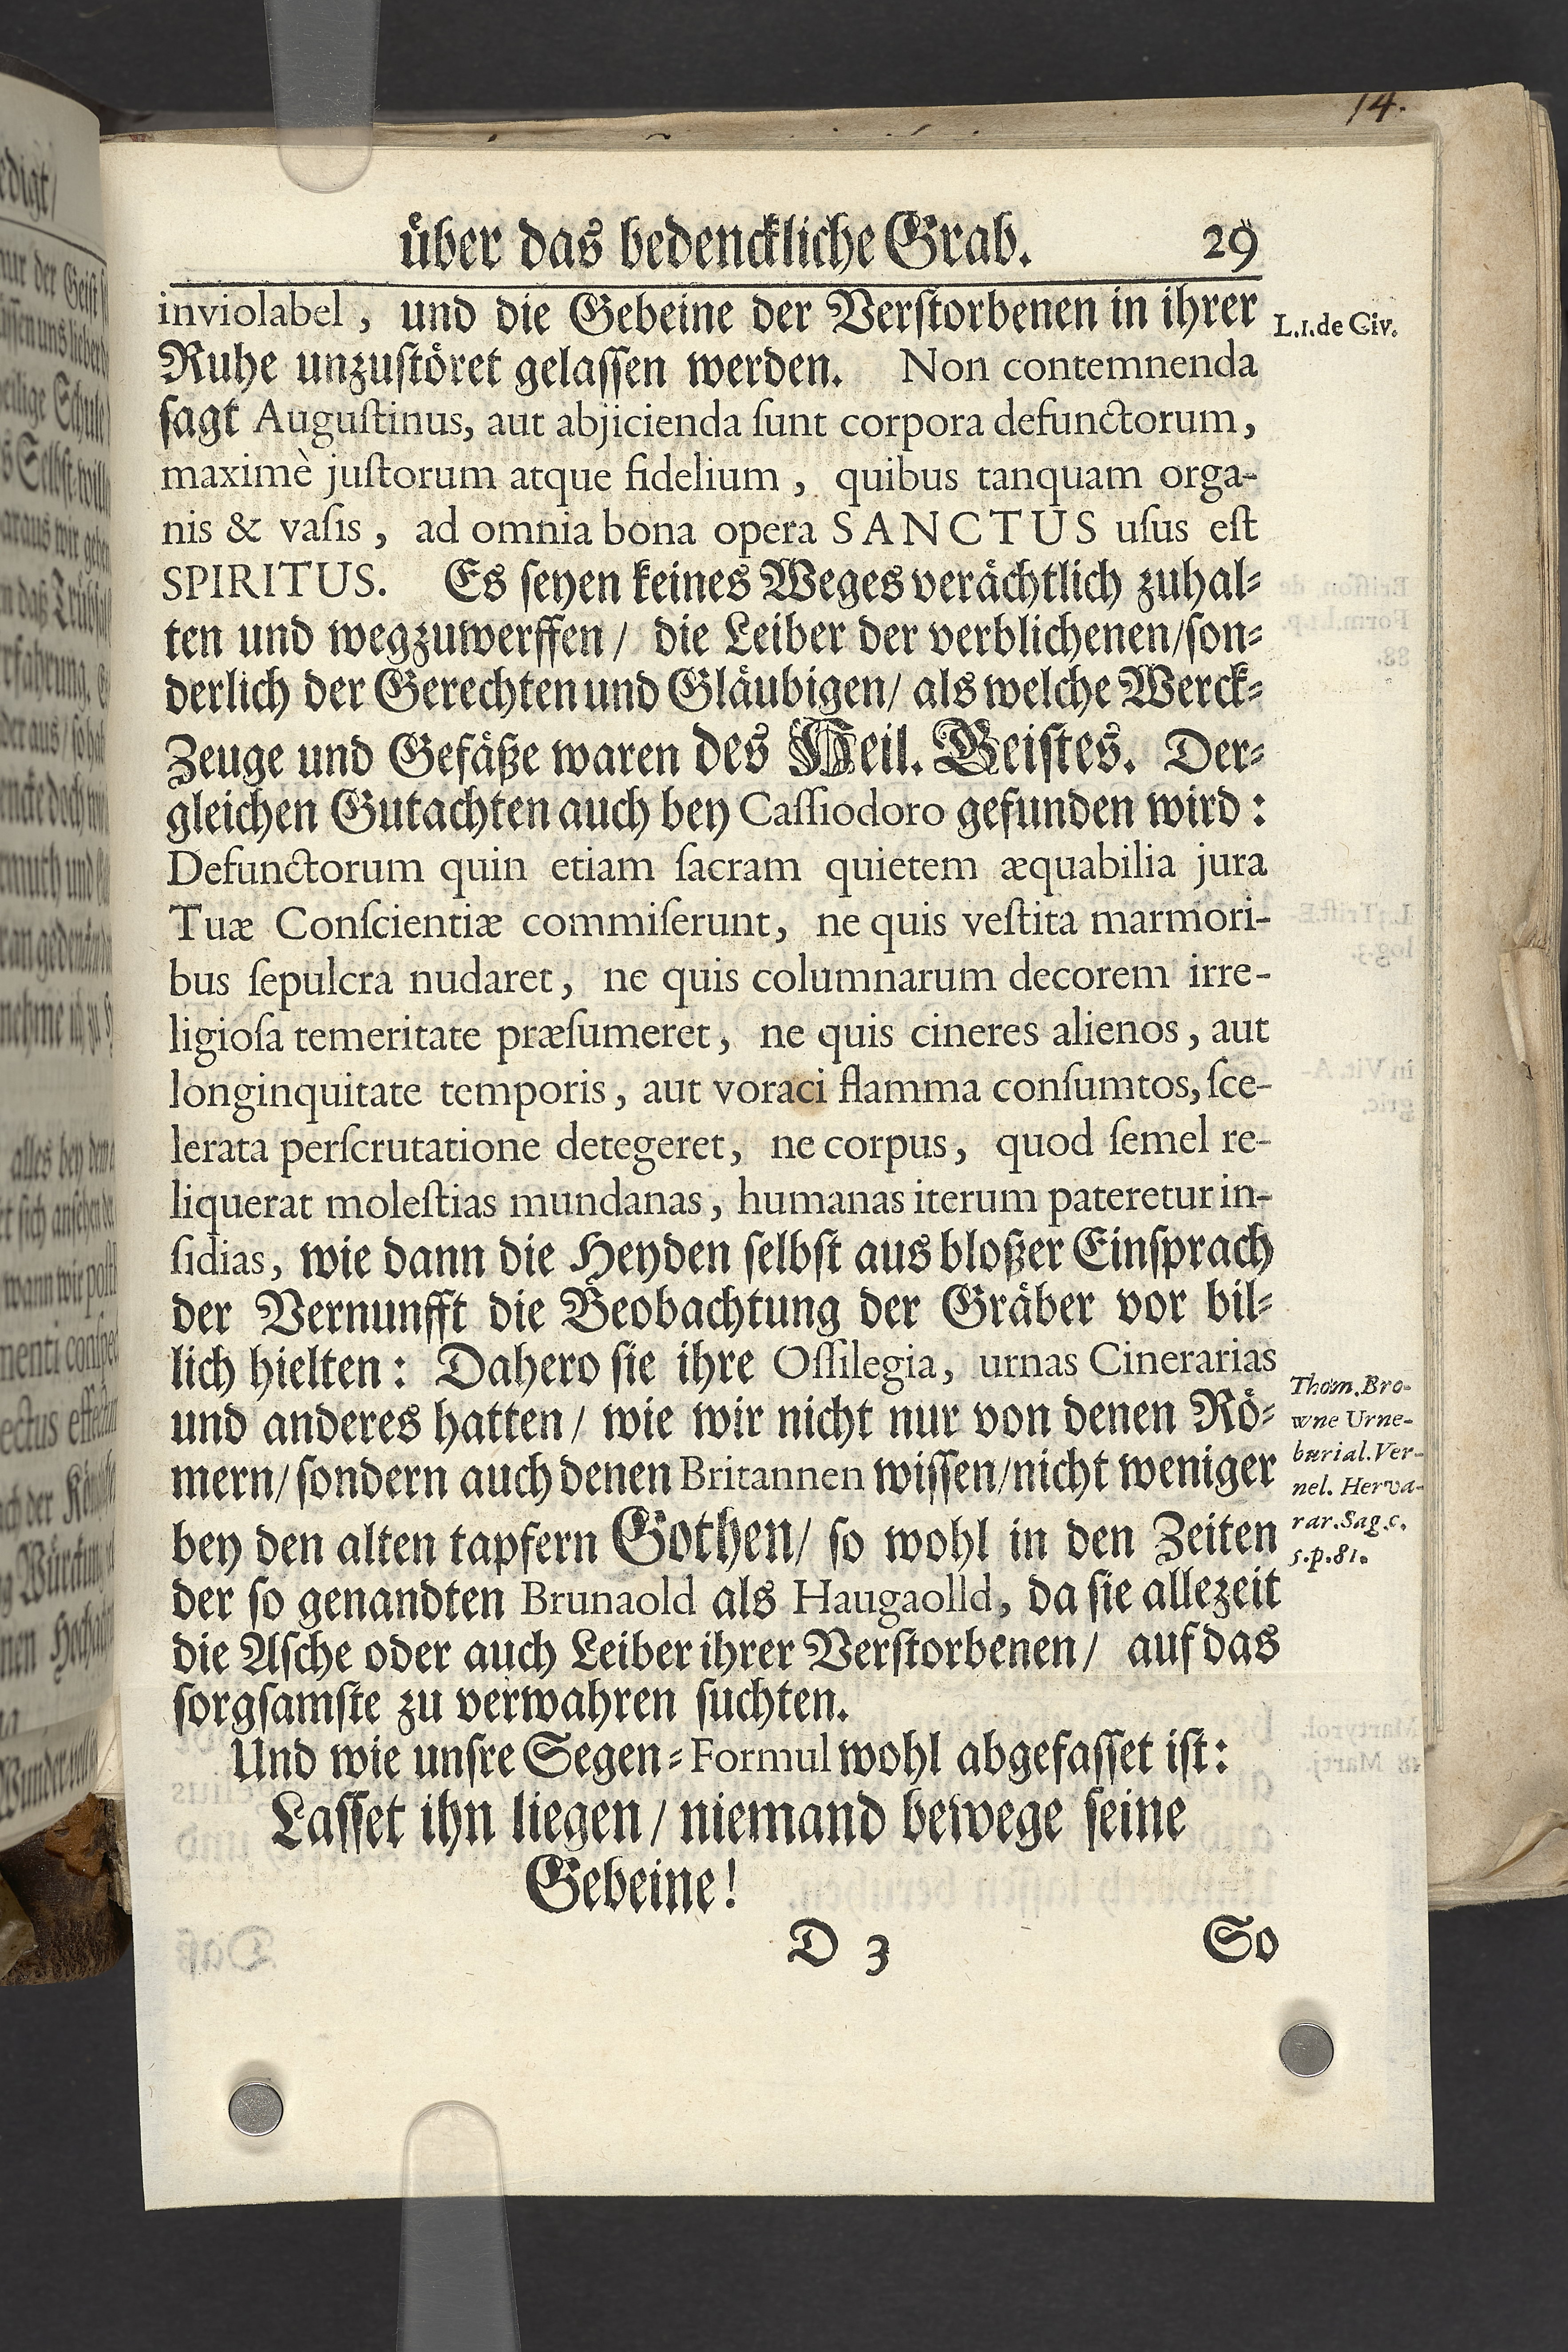 14.
über das bedenckliche Grab. 29
inviolabel, und die Gebeine der Verstorbenen in ihrer
L.1.de Civ.
Ruhe unzustöret gelassen werden. Non contemnenda
sagt Augustinus, aut abjicienda sunt corpora defunctorum,
maximè justorum atque fidelium, quibus tanquam orga-
nis & vasis, ad omnia bona opera SANCTUS usus est
SPIRITUS. Es seyen keines Weges verächtlich zuhal-
ten und wegzuwerffen/ die Leiber der verblichenen/son-
derlich der Gerechten und Gläubigen/ als welche Werck-
Zeuge und Gefäße waren des Heil. Geistes. Der-
gleichen Gutachten auch bey Cassiodoro gefunden wird:
Defunctorum quin etiam sacram quietem æquabilia jura
Tuæ Conscientiæ commiserunt, ne quis vestita marmori-
bus sepulcra nudaret, ne quis columnarum decorem irre-
ligiosa temeritate præsumeret, ne quis cineres alienos, aut
longinquitate temporis, aut voraci flamma consumtos, sce-
lerata perscrutatione detegeret, ne corpus, quod semel re-
liquerat molestias mundanas, humanas iterum pateretur in-
sidias, wie dann die Heyden selbst aus bloßer Einsprach
der Vernunfft die Beobachtung der Gräber vor bil-
lich hielten: Dahero sie ihre Ossilegia, urnas Cinerarias
und anderes hatten/ wie wir nicht nur von denen Rö-
mern/ sondern auch denen Britannen wissen/nicht weniger
bey den alten tapfern Gothen/ so wohl in den Zeiten
der so genandten Brunaold als Haugaolld, da sie allezeit
die Asche oder auch Leiber ihrer Verstorbenen/ auf das
sorgsamste zu verwahren suchten.
Thom.Bro-
wne Urne-
burial.Ver-
nel. Herva-
rar.Sag.c.
5.p.81.
Und wie unsre Segen-Formul wohl abgefasset ist:
Lasset ihn liegen/ niemand bewege seine
Gebeine!
D 3 So